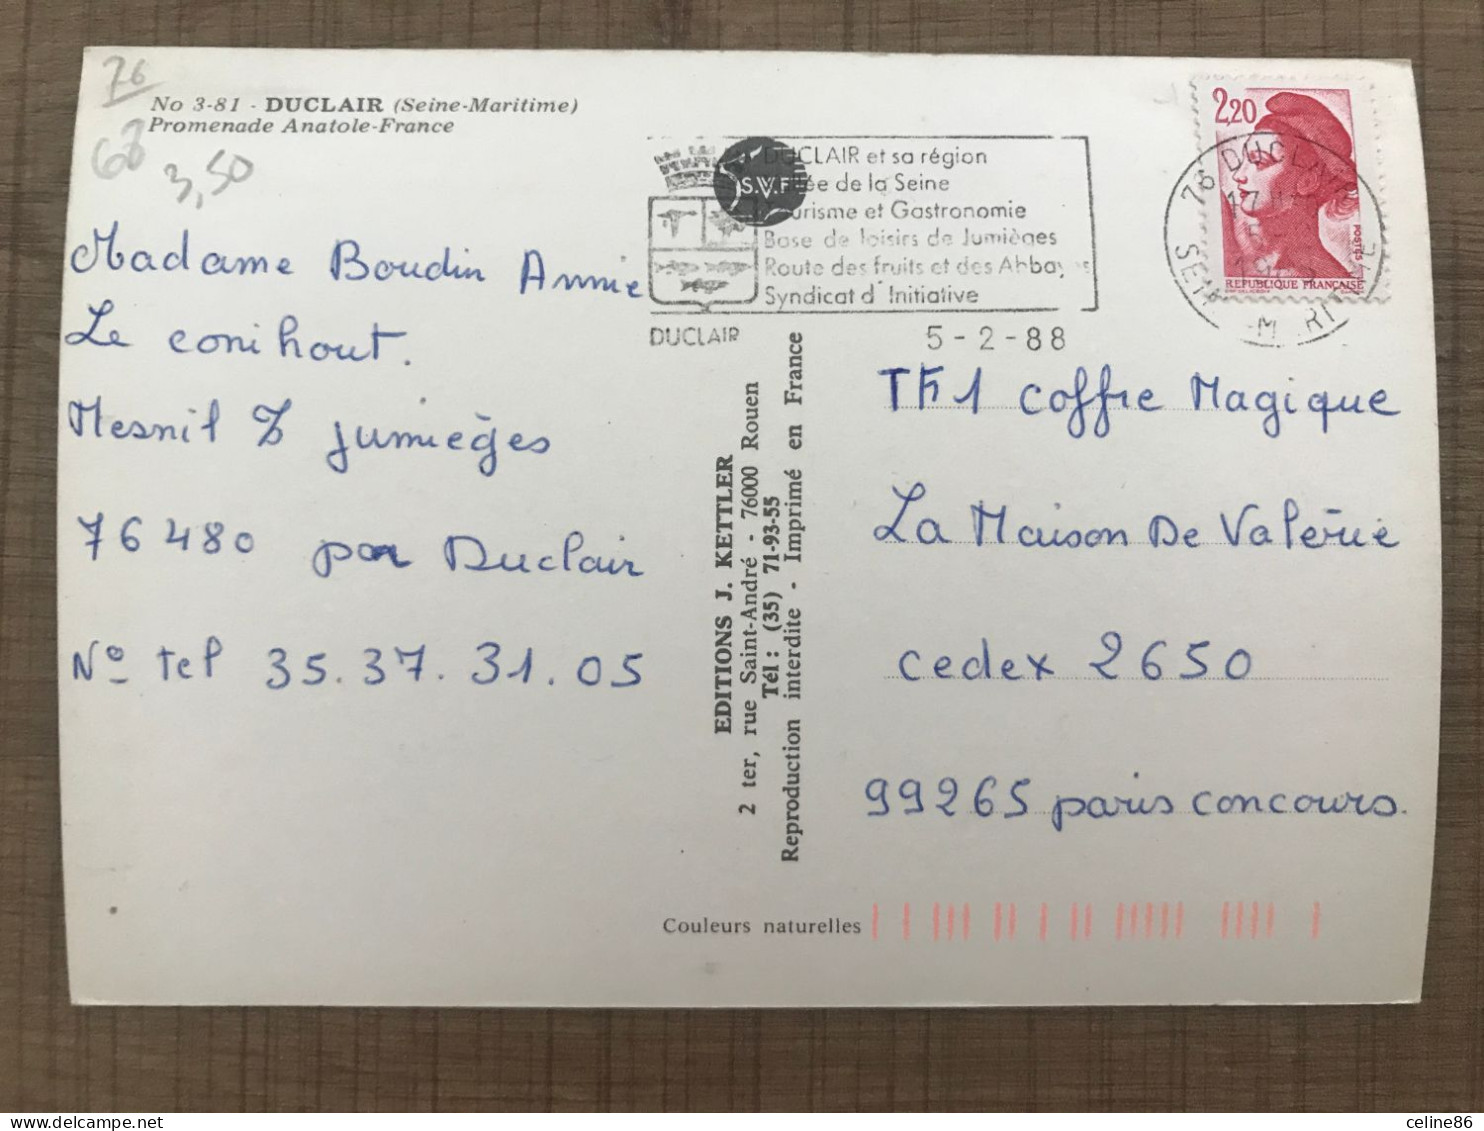 76
No 3-81 - DUCLAIR (Seine-Maritime)
Promenade Anatole-France
3,50
Madame Boudin Annie
Le conihout.
Mesnil s/ jumièges
76480 par Duclair
N° tel 35.37.31.05
S.V.F
DUCLAIR et sa région
lée de la Seine
urisme et Gastronomie
Base de loisirs de Jumièges
Route des fruits et des Abbayes
Syndicat d'Initiative
DUCLAIR
5-2-88
2,20
POSTES
REPUBLIQUE FRANÇAISE
76 DUCLAIR
SEINE-MARITIME
EDITIONS J. KETTLER
2 ter, rue Saint-André - 76000 Rouen
Tél : (35) 71-93-55
Reproduction interdite - Imprimé en France
TF1 coffre Magique
La Maison De Valérie
cedex 2650
99265 paris concours.
Couleurs naturelles
celine86